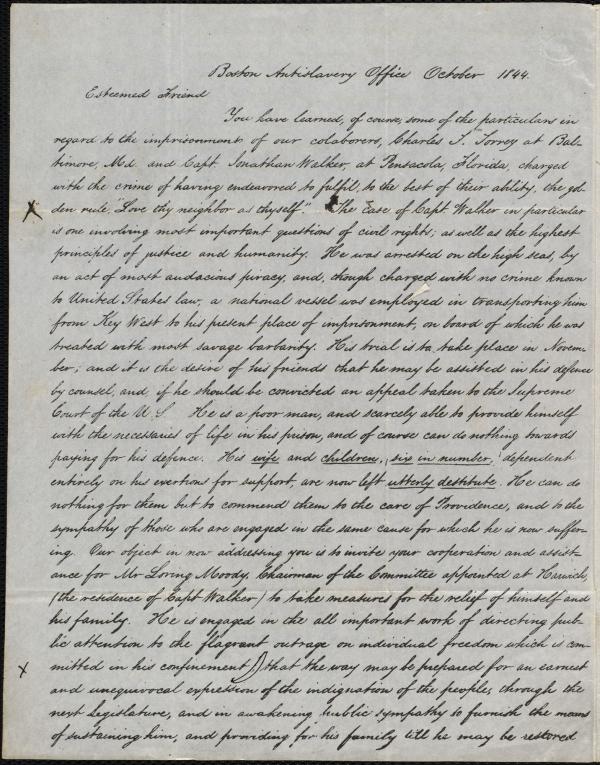 Boston Antislavery Office October 1844.
Esteemed Friend
You have learned, of course, some of the particulars in
regard to the imprisonment of our colaborers, Charles T. Torrey at Bal-
timore, Md. and Capt. Jonathan Walker, at Pensacola, Florida, charged
with the crime of having endeavored to fulfil, to the best of their ability, the gol-
X den rule, "Love thy neighbor as thyself." The Case of Capt. Walker in particular
is one involving most important questions of civil rights; as well as the highest
principles of justice and humanity. He was arrested on the high seas, by
an act of most audacious piracy, and, though charged with no crime known
to United States law, a national vessel was employed in transporting him
from Key West to his present place of imprisonment, on board of which he was
treated with most savage barbarity. His trial is to take place in Novem-
ber; and it is the desire of his friends that he may be assisted in his defence
by counsel, and, if he should be convicted an appeal taken to the Supreme
Court of the U. S. He is a poor man, and scarcely able to provide himself
with the necessaries of life in his prison, and of course can do nothing towards
paying for his defence. His wife and children, six in number, dependent
entirely on his exertions for support, are now left utterly destitute. He can do
nothing for them but to commend them to the care of Providence, and to the
sympathy of those who are engaged in the same cause for which he is now suffer-
ing. Our object in now addressing you is to invite your cooperation and assist-
ance for Mr Loring Moody, Chairman of the Committee appointed at Harwich,
(the residence of Capt Walker) to take measures for the relief of himself and
his family. He is engaged in the all important work of directing pub-
lic attention to the flagrant outrage on individual freedom which is com-
X mitted in his confinement,) that the way may be prepared for an earnest
and unequivocal expression of the indignation of the people, through the
next Legislature, and in awakening public sympathy to furnish the means
of sustaining him, and providing for his family till he may be restored